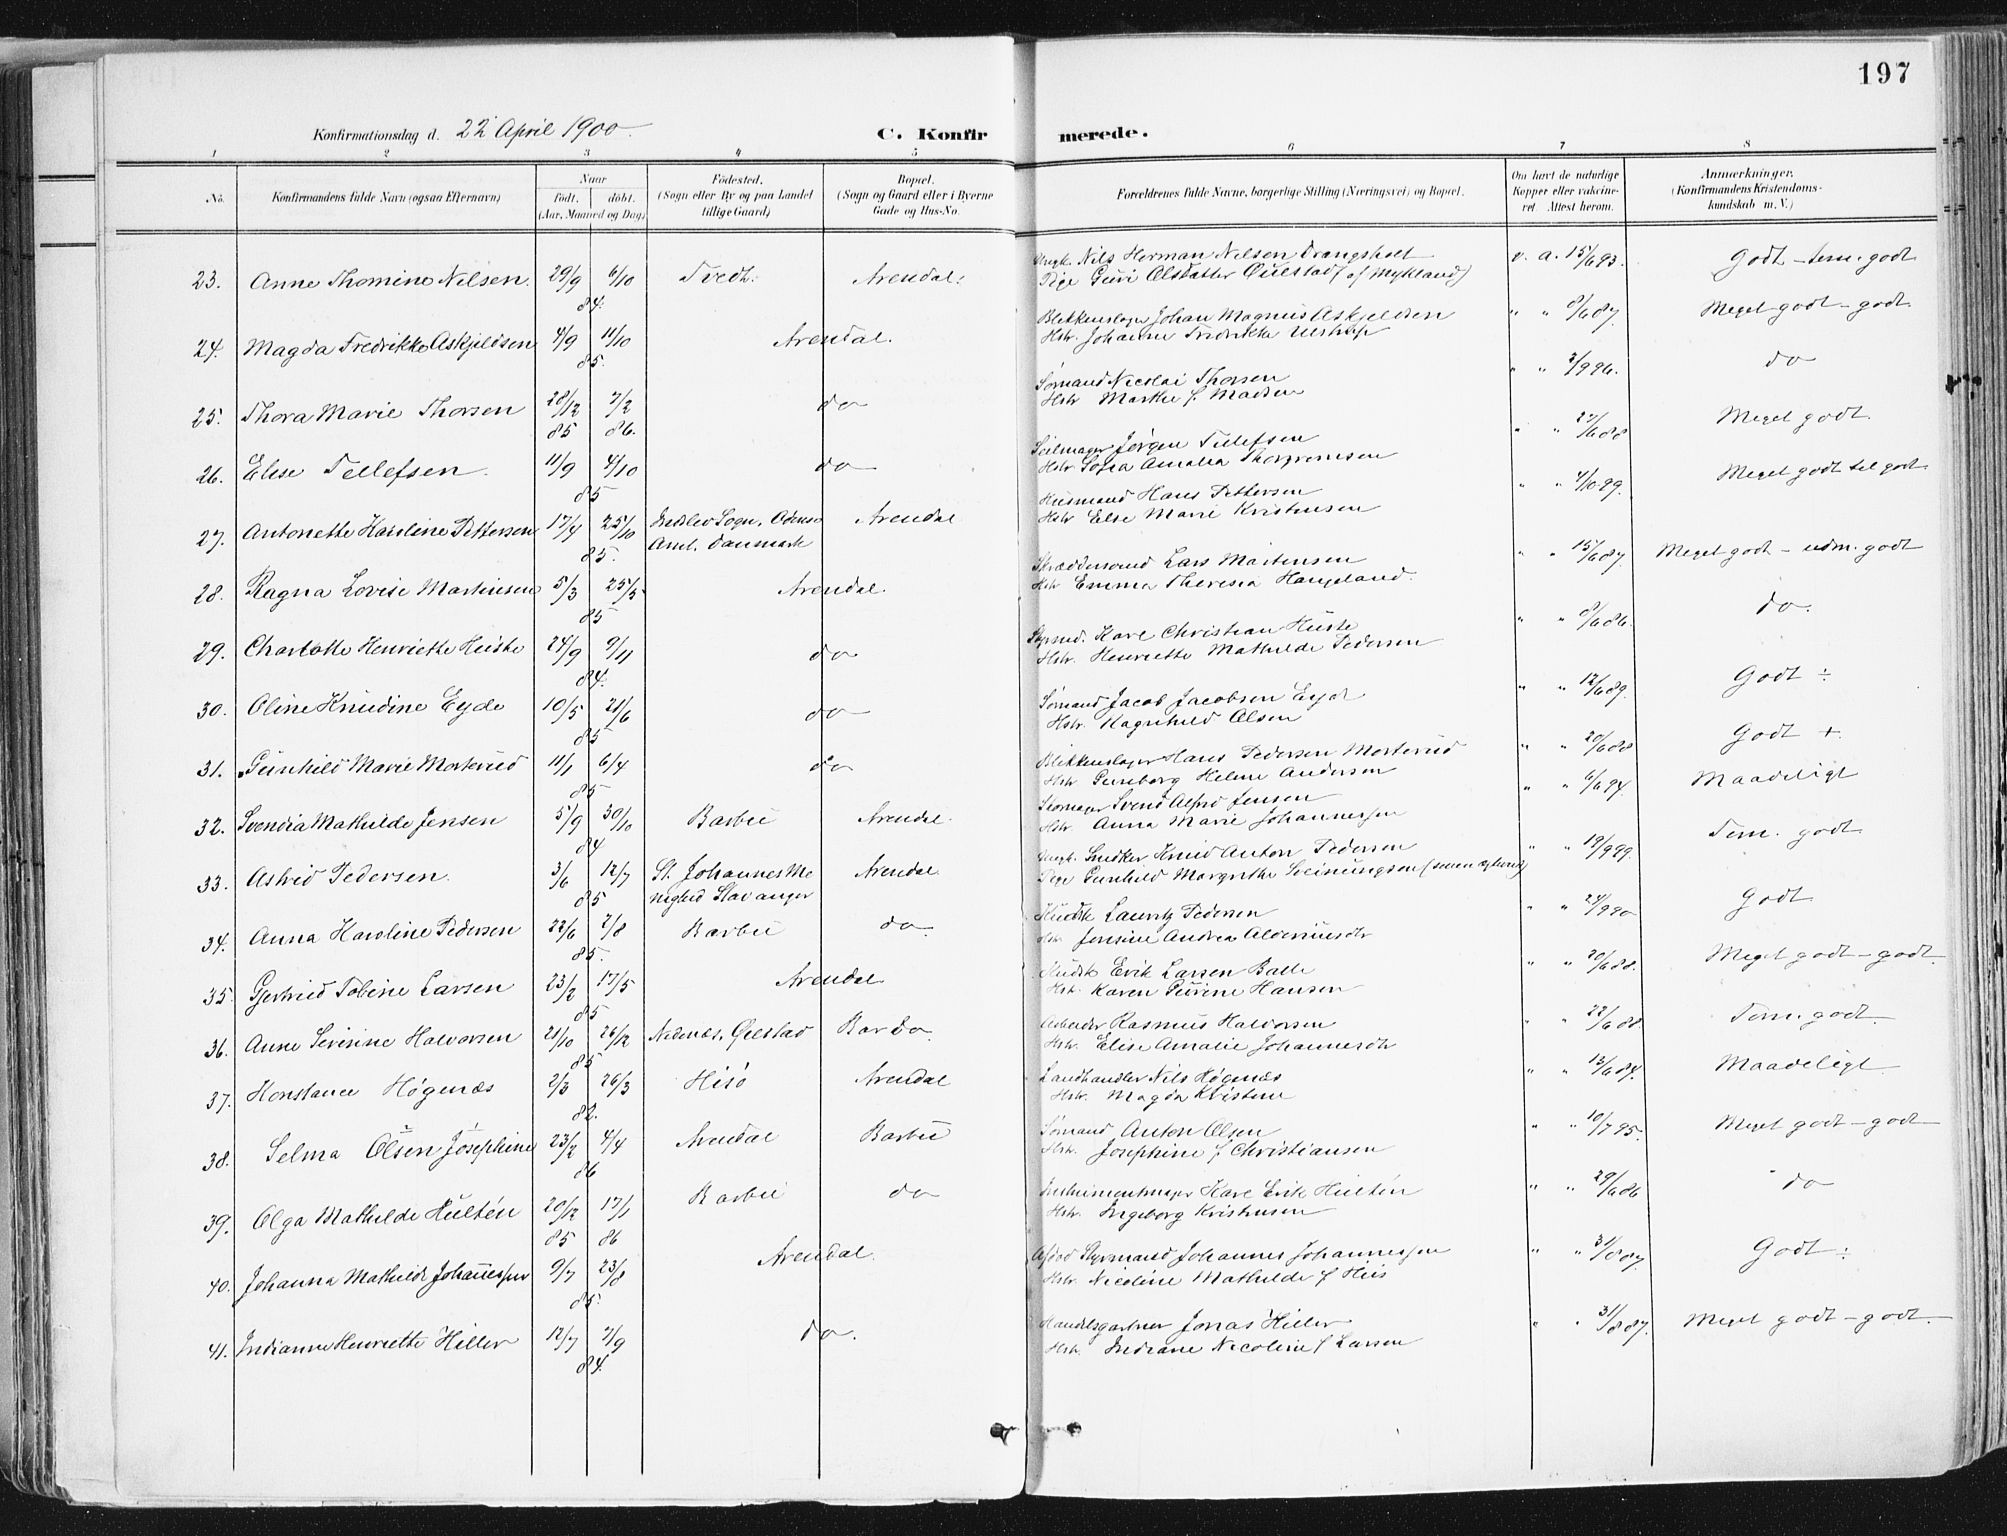 197
Konfirmationsdag d. 22 April 1900.
C. Konfirmerede.
1 2 3 4 5 6 7 8
No.
Konfirmandens fulde Navn (ogsaa Efternavn)
Naar
født. döbt.
(Aar, Maaned og Dag)
Födested.
(Sogn eller By og paa Landet
tillige Gaard)
Bopæl.
(Sogn og Gaard eller i Byerne
Gade og Hus-No.
Forældrenes fulde Navne, borgerlige Stilling (Næringsvei) og Bopæl.
Om havt de naturlige
Kopper eller vakcine-
ret. Attest herom.
Anmærkninger.
(Konfirmandens Kristendoms-
kundskab m. V.)
23. Anne Thomine Nilsen. 29/9 6/10 84. Tvedt. Arendal. Ungk. Nils Herman Nilsen Drangsholt
Pige Guri Olsdatter (af Mykland) v. a. 15/6 93. Godt - tem. godt
24. Magda Fredrikke Askjeldsen 4/9 11/10 85. Arendal. Blikkenslager Johan Magnus Askjeldsen
Hstr. Johanne Fredrikke Ulstrup " " 8/6 87. Meget godt - godt.
25. Thora Marie Thorsen 28/12 85 7/2 86. do Sømand Nicolai Thorsen
Hstr Marthe f. Madsen " " 2/9 96. do
26. Elise Tellefsen. 11/9 4/10 85 do Seilmager Jørgen Tellefsen
Hstr Sofia Amalia " " 27/6 88 Meget godt.
27. Antonette Karoline Pettersen 17/4 25/10 85. Sogn, Odense
Amt. Danmark Arendal Husmand Hans Pettersen
Hstr Else Marie Kristensen " " 4/10 99. Meget godt til godt.
28. Ragna Lovise Martinsen 5/3 25/5 85 Arendal. Skræddersvend Lars Martensen
Hstr Emma Theresia Haugeland. " " 15/6 87. Meget godt - udm. godt
29. Charlotte Henriette Huste 24/9 9/11 84. do Karl Christian Huste
Hstr. Henriette Mathilde Pedersen " " 8/6 86. do.
30. Oline Knudine Eyde 10/5 21/6 85 do Sømand Jacob Jacobsen Eyde
Hstr. Ragnhild Olsen " " 12/6 89. Godt ÷
31. Gunhild Marie Morterud 11/1 6/4 85 do Blikkenslager Hans Pedersen Morterud
Hstr. Gunborg Helene Andersen " " 20/6 88 Godt +.
32. Svendia Mathilde Jensen 5/9 30/10 84 Barbu Arendal. Skomager Svend Alfred Jensen
Hstr. Anna Marie Johannessen " " 6/6 94. Maadeligt
33. Astrid Pedersen. 3/6 12/7 85 St. Johannes Me
nighed Stavanger Arendal Ungk. Snedker Knud Anton Pedersen
Pige Gunhild Margrethe Seinungsen " " 19/9 99. Tem. godt
34. Anna Karoline Pedersen 22/6 2/8 85. Barbu do. Lauritz Pedersen
Hstr. Jensine Andrea " " 24/9 90 Godt
35. Gjertrud Tobine Larsen 23/2 17/5 85 Arendal. Erik Larsen Balle
Hstr. Karen Gurine Hansen " " 20/6 88. Meget godt - godt.
36. Anne Severine Halvorsen 21/10 26/12 85 Nedenæs, Øiestad Barbu. Arbeider Rasmus Halvorsen
Hstr. Elise Amalie Johannesdtr " " 22/6 88. Tem. godt.
37. Konstance Høgenæs 2/3 26/3 82. Hisö Arendal Landhandler Nils Høgenæs
Hstr. Magda Kristine " " 13/6 84. Maadeligt
38. Selma Olsen Josephine 23/2 4/4 86 Arendal Barbu Sømand Anton Olsen
Hstr. Josephine f. Christiansen " " 10/7 95. Meget godt - godt
39. Olga Mathilde Hultén 20/12 85 17/1 86 Barbu do Instrumentmager Karl Erik Hultén
Hstr. Ingeborg Kristensen " " 29/6 86 do
40. Johanna Mathilde Johannessen 9/7 23/8 85. Arendal. Afdød Styrmand Johannes Johannessen
Hstr. Nicoline Mathilde f. Hiis " " 31/8 87. Godt ÷
41. Indianne Henriette Hiller 12/7 7/9 84. do. Handelsgartner Jonas Hiller
Hstr. Indiane Nicoline f. Larsen " " 31/8 87. Meget godt - godt.